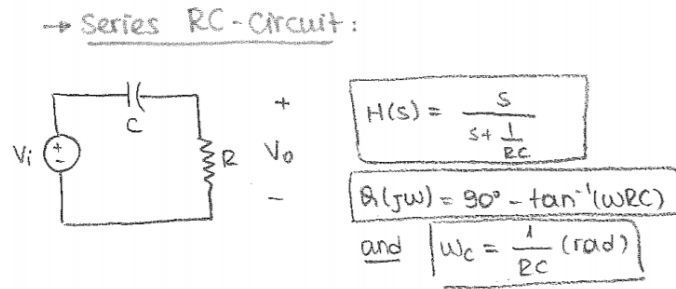 → Series RC-Circuit:
C
Vi
+
-
R
+
Vo
-
H(s) = s / (s + 1/RC)
θ(jω) = 90° - tan⁻¹(ωRC)
and ωc = 1/RC (rad)